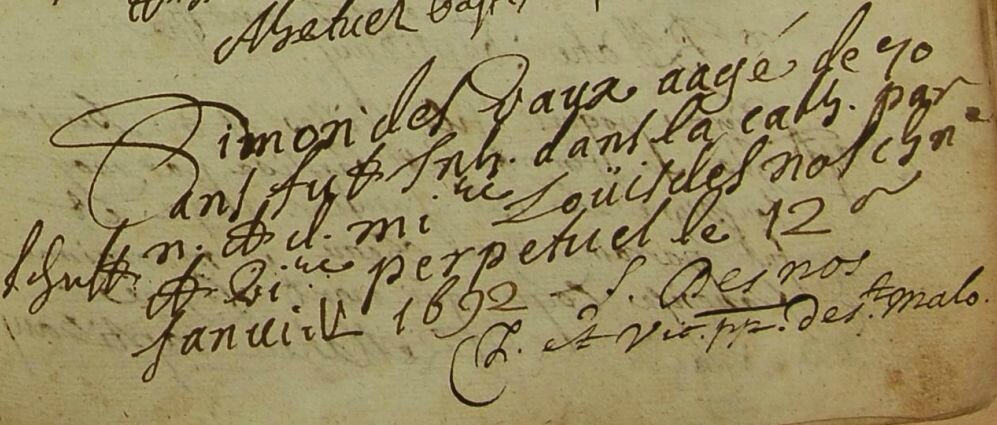 Simon des Vaux aagé de 70
ans fut Inh. dans la cath. par
n. et d. mi.re Loüis des nos chne
et Vi.re perpetuel le 12
Januier 1692 L. Des nos
Ch. et Vic. pp. de St. Malo.